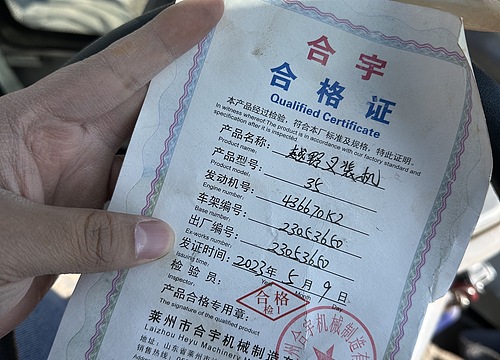 合宇
合格证
Qualified Certificate
本产品经过检验，符合本厂标准及规格，特此证明。
In witness whereof The product is in accordance with our factory standard and
specification after it is inspected.
产品名称：越野叉装机
Product name:
产品型号：35
Product model:
发动机号：436670K2
Engine number:
车架编号：23053650
Base number:
出厂编号：23053650
Ex-works number:
发证时间：2023年5月9日
Issuing time:
检验员：
Inspector:
合格
检1
产品合格专用章：
The signature of the qualified product
莱州市合宇机械制造
Laizhou Heyu Machinery
地址：山东省莱州市
销售热线